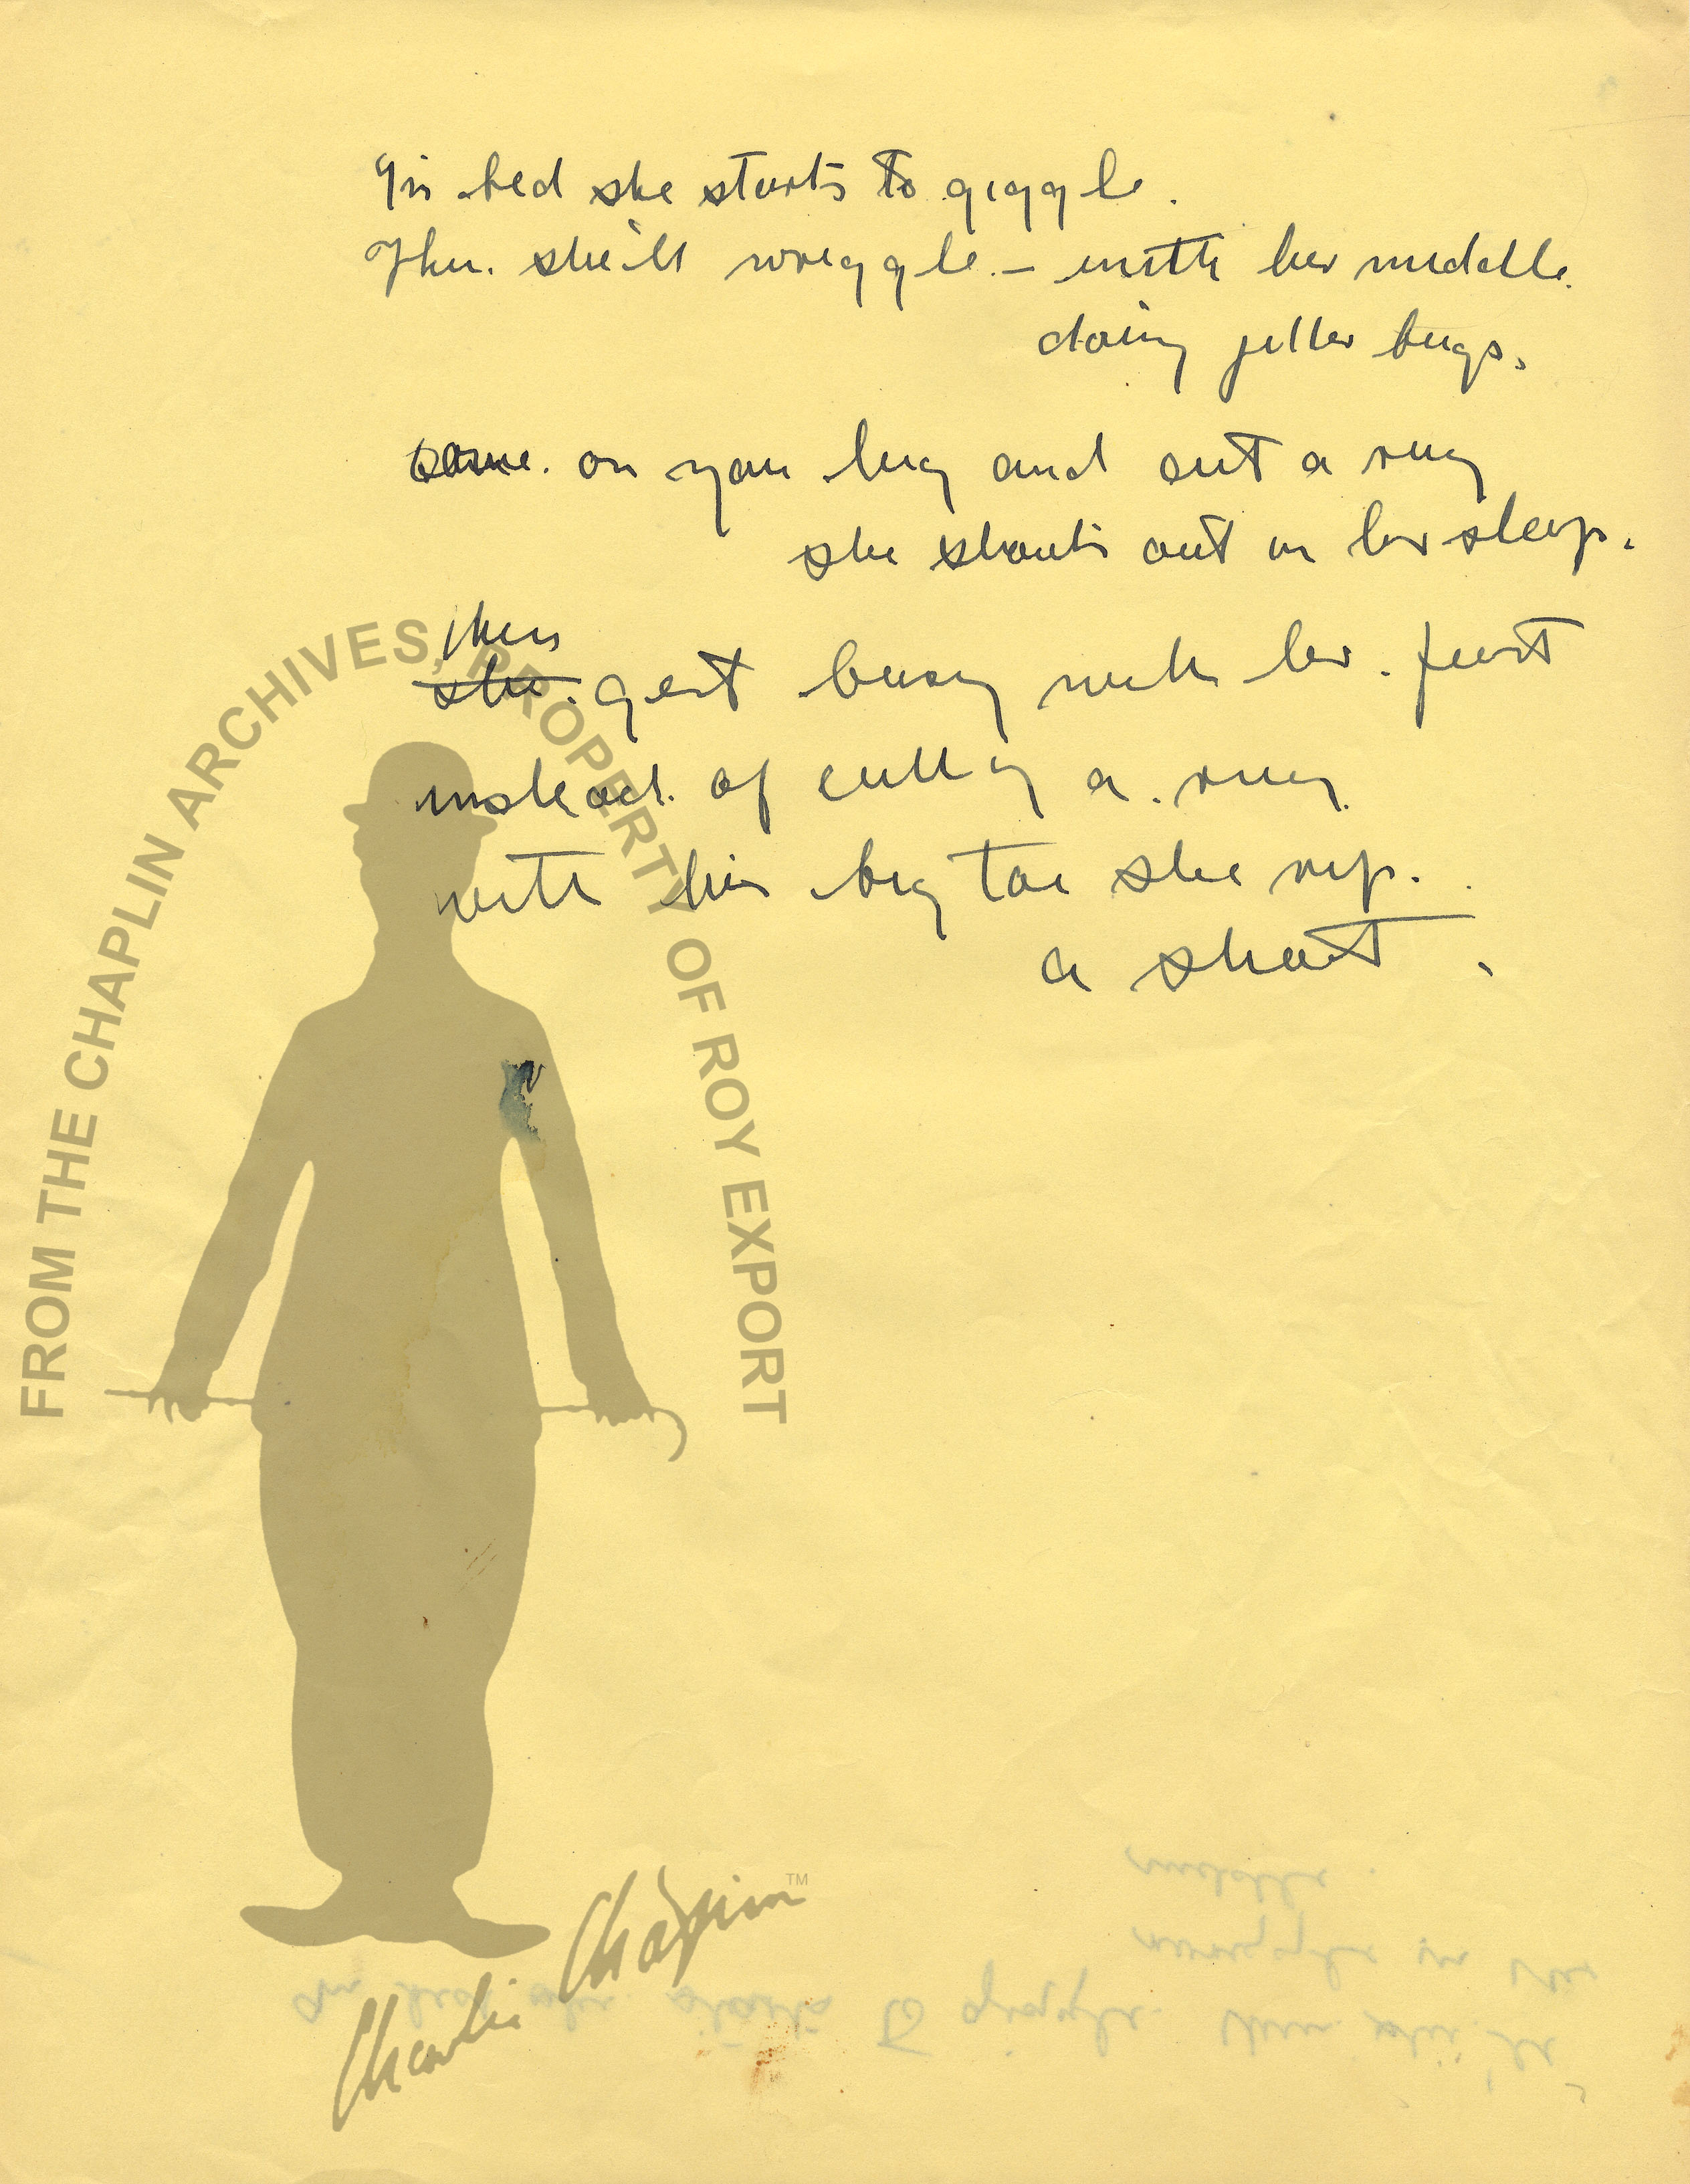 In bed she starts to giggle.
Then she'll wriggle - with her middle.
doing jitter bugs.
come on you bug and cut a rug
she shouts out in her sleep.
then
she get busy with her feet
instead of cutting a rug
with her big toe she rip.
a sheet.
FROM THE CHAPLIN ARCHIVES, PROPERTY OF ROY EXPORT
Charlie Chaplin TM
middle.
wriggle in the
In bed she starts to giggle. then she'll